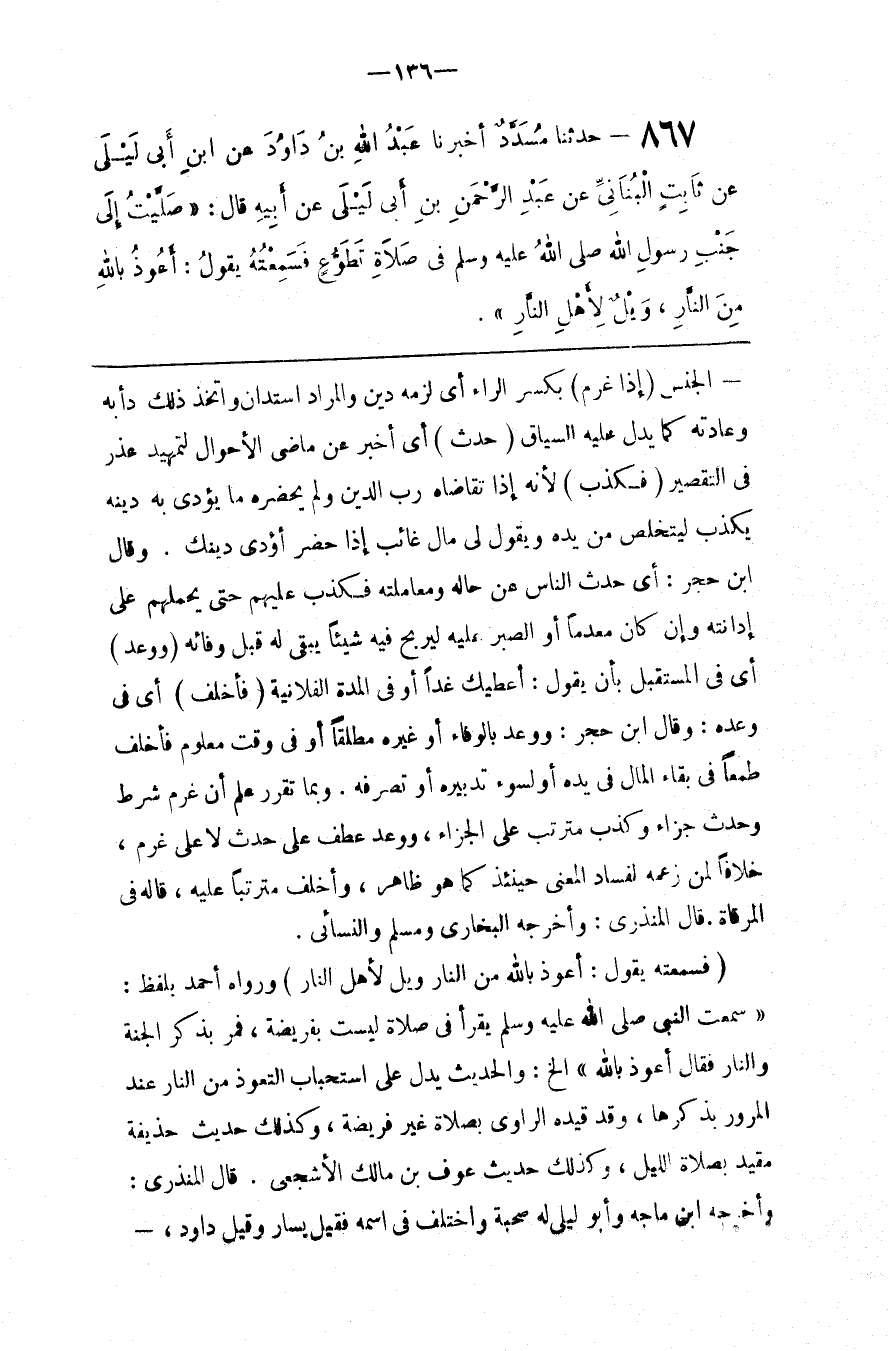 —١٣٦—
٨٦٧ — حدثنا مُسَدَّدٌ أخبرنا عَبْدُ اللهِ بنُ دَاوُدَ عن ابنِ أَبى لَيْلَى
عن ثَابِتٍ الْبُنَانِىِّ عن عَبْدِ الرَّحْمَنِ بنِ أَبى لَيْلَى عن أَبِيهِ قال : « صَلَّيْتُ إِلَى
جَنْبِ رسولِ الله صلى اللهُ عليه وسلم فى صَلاَةِ تَطَوُّعٍ فَسَمِعْتُهُ يقولُ : أَعُوذُ باللهِ
مِنَ النَّارِ ، وَيْلٌ لِأَهْلِ النَّارِ » .
— الجنس (إذا غرم) بكسر الراء أى لزمه دين والمراد استدان واتخذ ذلك دأبه
وعادته كما يدل عليه السياق ( حدث ) أى أخبر عن ماضى الأحوال لتمهيد عذر
فى التقصير ( فكذب ) لأنه إذا تقاضاه رب الدين ولم يحضره ما يؤدى به دينه
يكذب ليتخلص من يده ويقول لى مال غائب إذا حضر أؤدى دينك . وقال
ابن حجر : أى حدث الناس عن حاله ومعاملته فكذب عليهم حتى يحملهم على
إدانته وإن كان معدماً أو الصبر عليه ليربح فيه شيئاً يبقى له قبل وفائه (ووعد )
أى فى المستقبل بأن يقول : أعطيك غداً أو فى المدة الفلانية ( فأخلف ) أى فى
وعده : وقال ابن حجر : ووعد بالوفاء أو غيره مطلقاً أو فى وقت معلوم فأخلف
طمعاً فى بقاء المال فى يده أو لسوء تدبيره أو تصرفه . وبما تقرر علم أن غرم شرط
وحدث جزاء وكذب مترتب على الجزاء ، ووعد عطف على حدث لا على غرم ،
خلافاً لمن زعمه لفساد المعنى حينئذ كما هو ظاهر ، وأخلف مترتباً عليه ، قاله فى
المرقاة . قال المنذرى : وأخرجه البخارى ومسلم والنسائى .
( فسمعته يقول : أعوذ بالله من النار ويل لأهل النار ) ورواه أحمد بلفظ :
« سمعت النبى صلى الله عليه وسلم يقرأ فى صلاة ليست بفريضة ، فمر بذكر الجنة
والنار فقال أعوذ بالله » الخ : والحديث يدل على استحباب التعوذ من النار عند
المرور بذكرها ، وقد قيده الراوى بصلاة غير فريضة ، وكذلك حديث حذيفة
مقيد بصلاة الليل ، وكذلك حديث عوف بن مالك الأشجعى . قال المنذرى :
وأخرجه ابن ماجه وأبو ليلى له صحبة واختلف فى اسمه فقيل يسار وقيل داود ، —